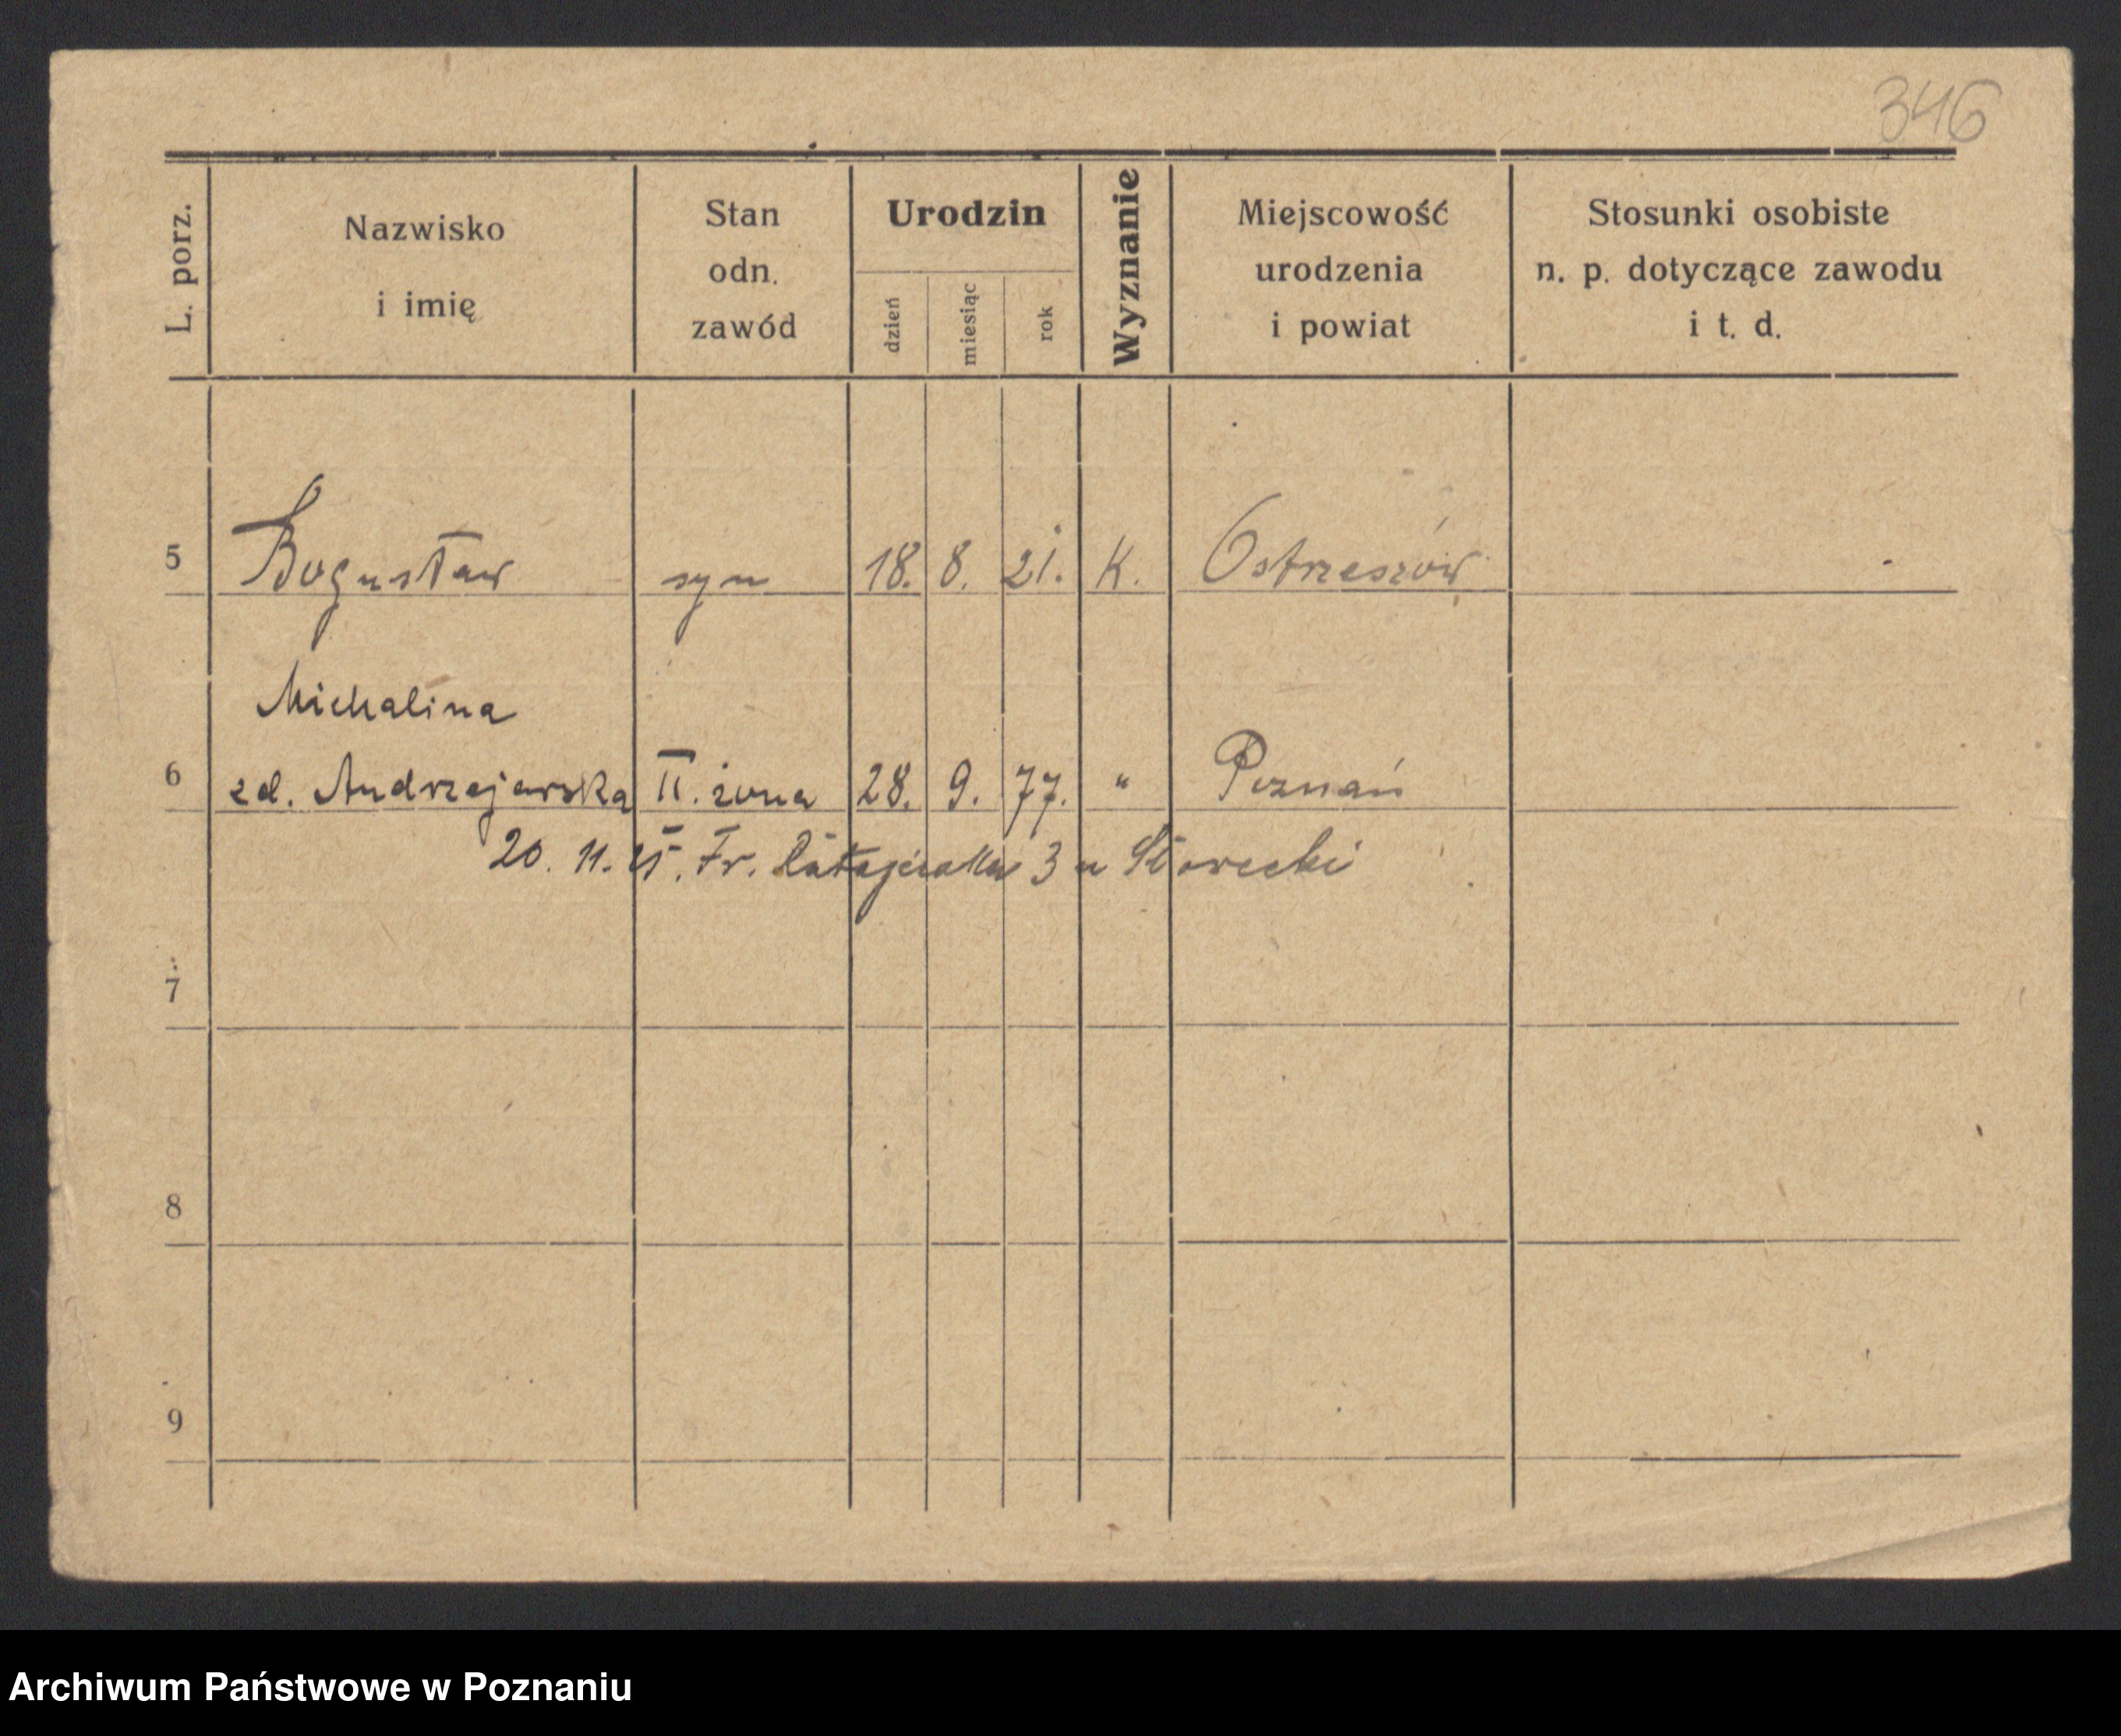 346
L. porz.
Nazwisko
i imię
Stan
odn.
zawód
Urodzin
dzień
miesiąc
rok
Wyznanie
Miejscowość
urodzenia
i powiat
Stosunki osobiste
n. p. dotyczące zawodu
i t. d.
5 Bogusław syn 18. 8. 21. K. Ostrzeszów
Michalina
6 zd. Andrzejewska II. żona 28. 9. 77. " Poznań
20. 11. 25. Fr. Ratajczaka 3 u
7
8
9
Archiwum Państwowe w Poznaniu